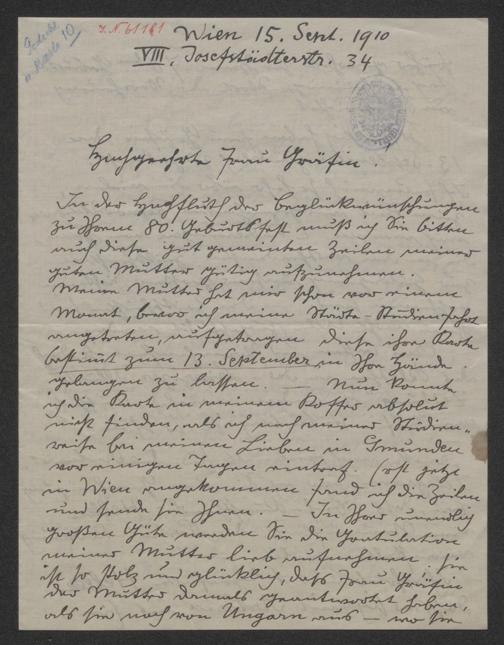 I. N 61161
Wien 15. Sept. 1910
VIII, Josefstädterstr. 34
Hochgeehrte Frau Gräfin.
In der Hochfluth der Beglückwünschungen
zu Ihrem 80. Geburtsfest muß ich Sie bitten
auch diese gut gemeinten Zeilen meiner
guten Mutter gütig aufzunehmen.
Meine Mutter hat mir schon vor einem
Monat, bevor ich meine Städte-Studienfahrt
angetreten, aufgetragen diese ihre Karte
bestimmt zum 13. September in Ihre Hände
gelangen zu lassen. — Nun konnte
ich die Karte in meinem Koffer absolut
nicht finden, als ich nach meiner Studien-
reise bei meinen Lieben in Gmunden
vor einigen Tagen eintraf. Erst jetzt
in Wien angekommen fand ich die Zeilen
und sende sie Ihnen. — In Ihrer unendlich
großen Güte werden Sie die Gratulation
meiner Mutter lieb aufnehmen, sie
ist so stolz und glücklich, daß Frau Gräfin
der Mutter damals geantwortet haben,
als sie noch von Ungarn aus — wo sie